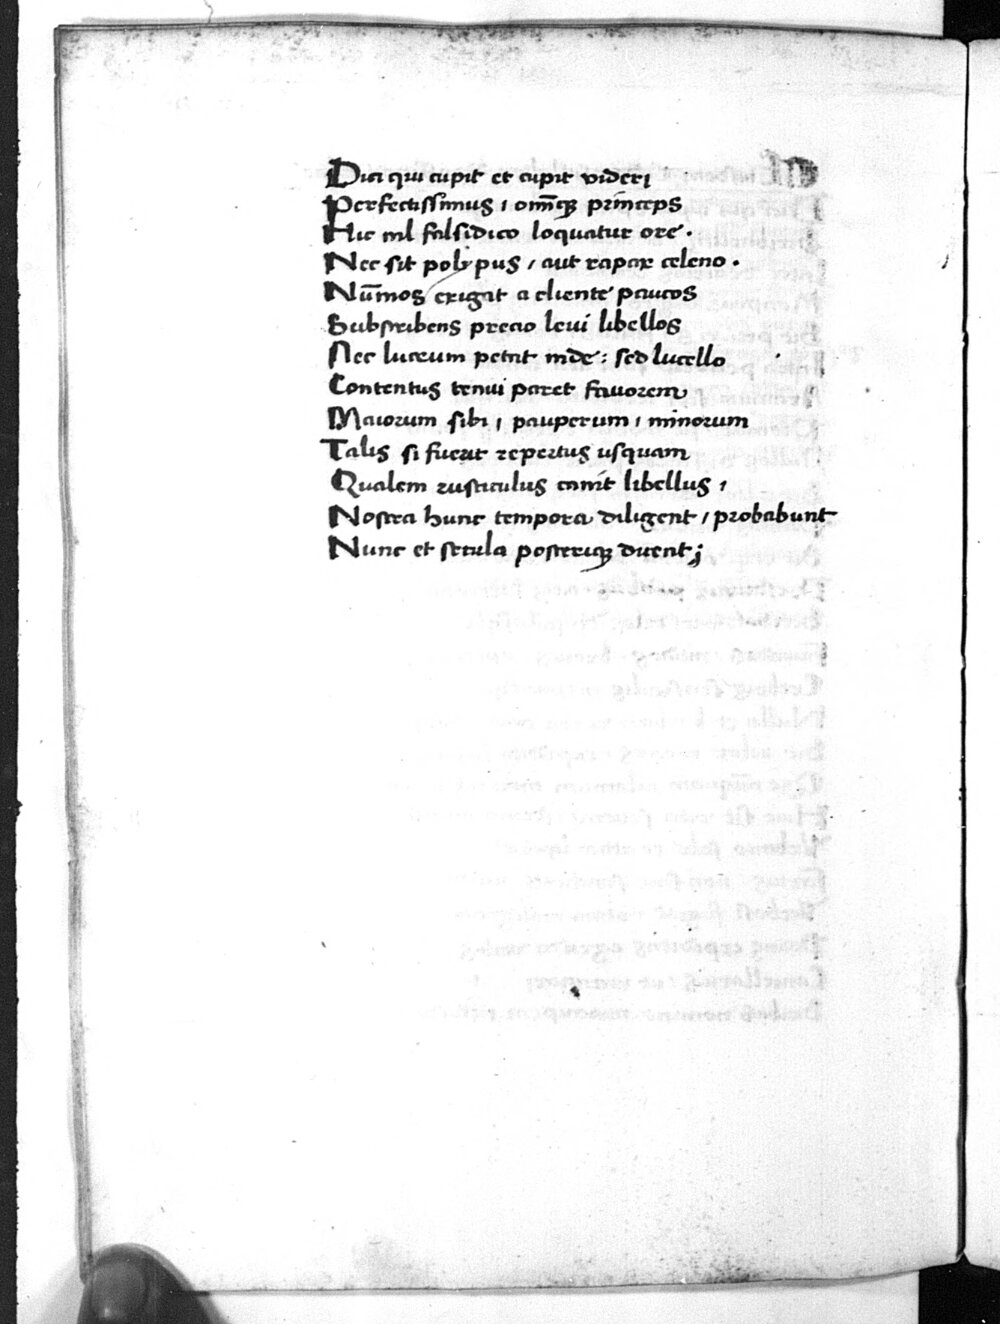 Dici qui cupit et cupit videri
Perfectissimus, om̄iq; princeps
Hic nil falsidico loquatur ore.
Nec sit polypus, aut rapax celeno.
Nūmos exigat a cliente paucos
Subscribens precio leui libellos
Nec lucrum petat inde: sed lucello
Contentus tenui paret fauorem
Maiorum sibi, pauperum, minorum
Talis si fuerit repertus usquam
Qualem rusticulus canit libellus,
Nostra hunc tempora diligent, probabunt
Nunc et secula posteriq; dicent;